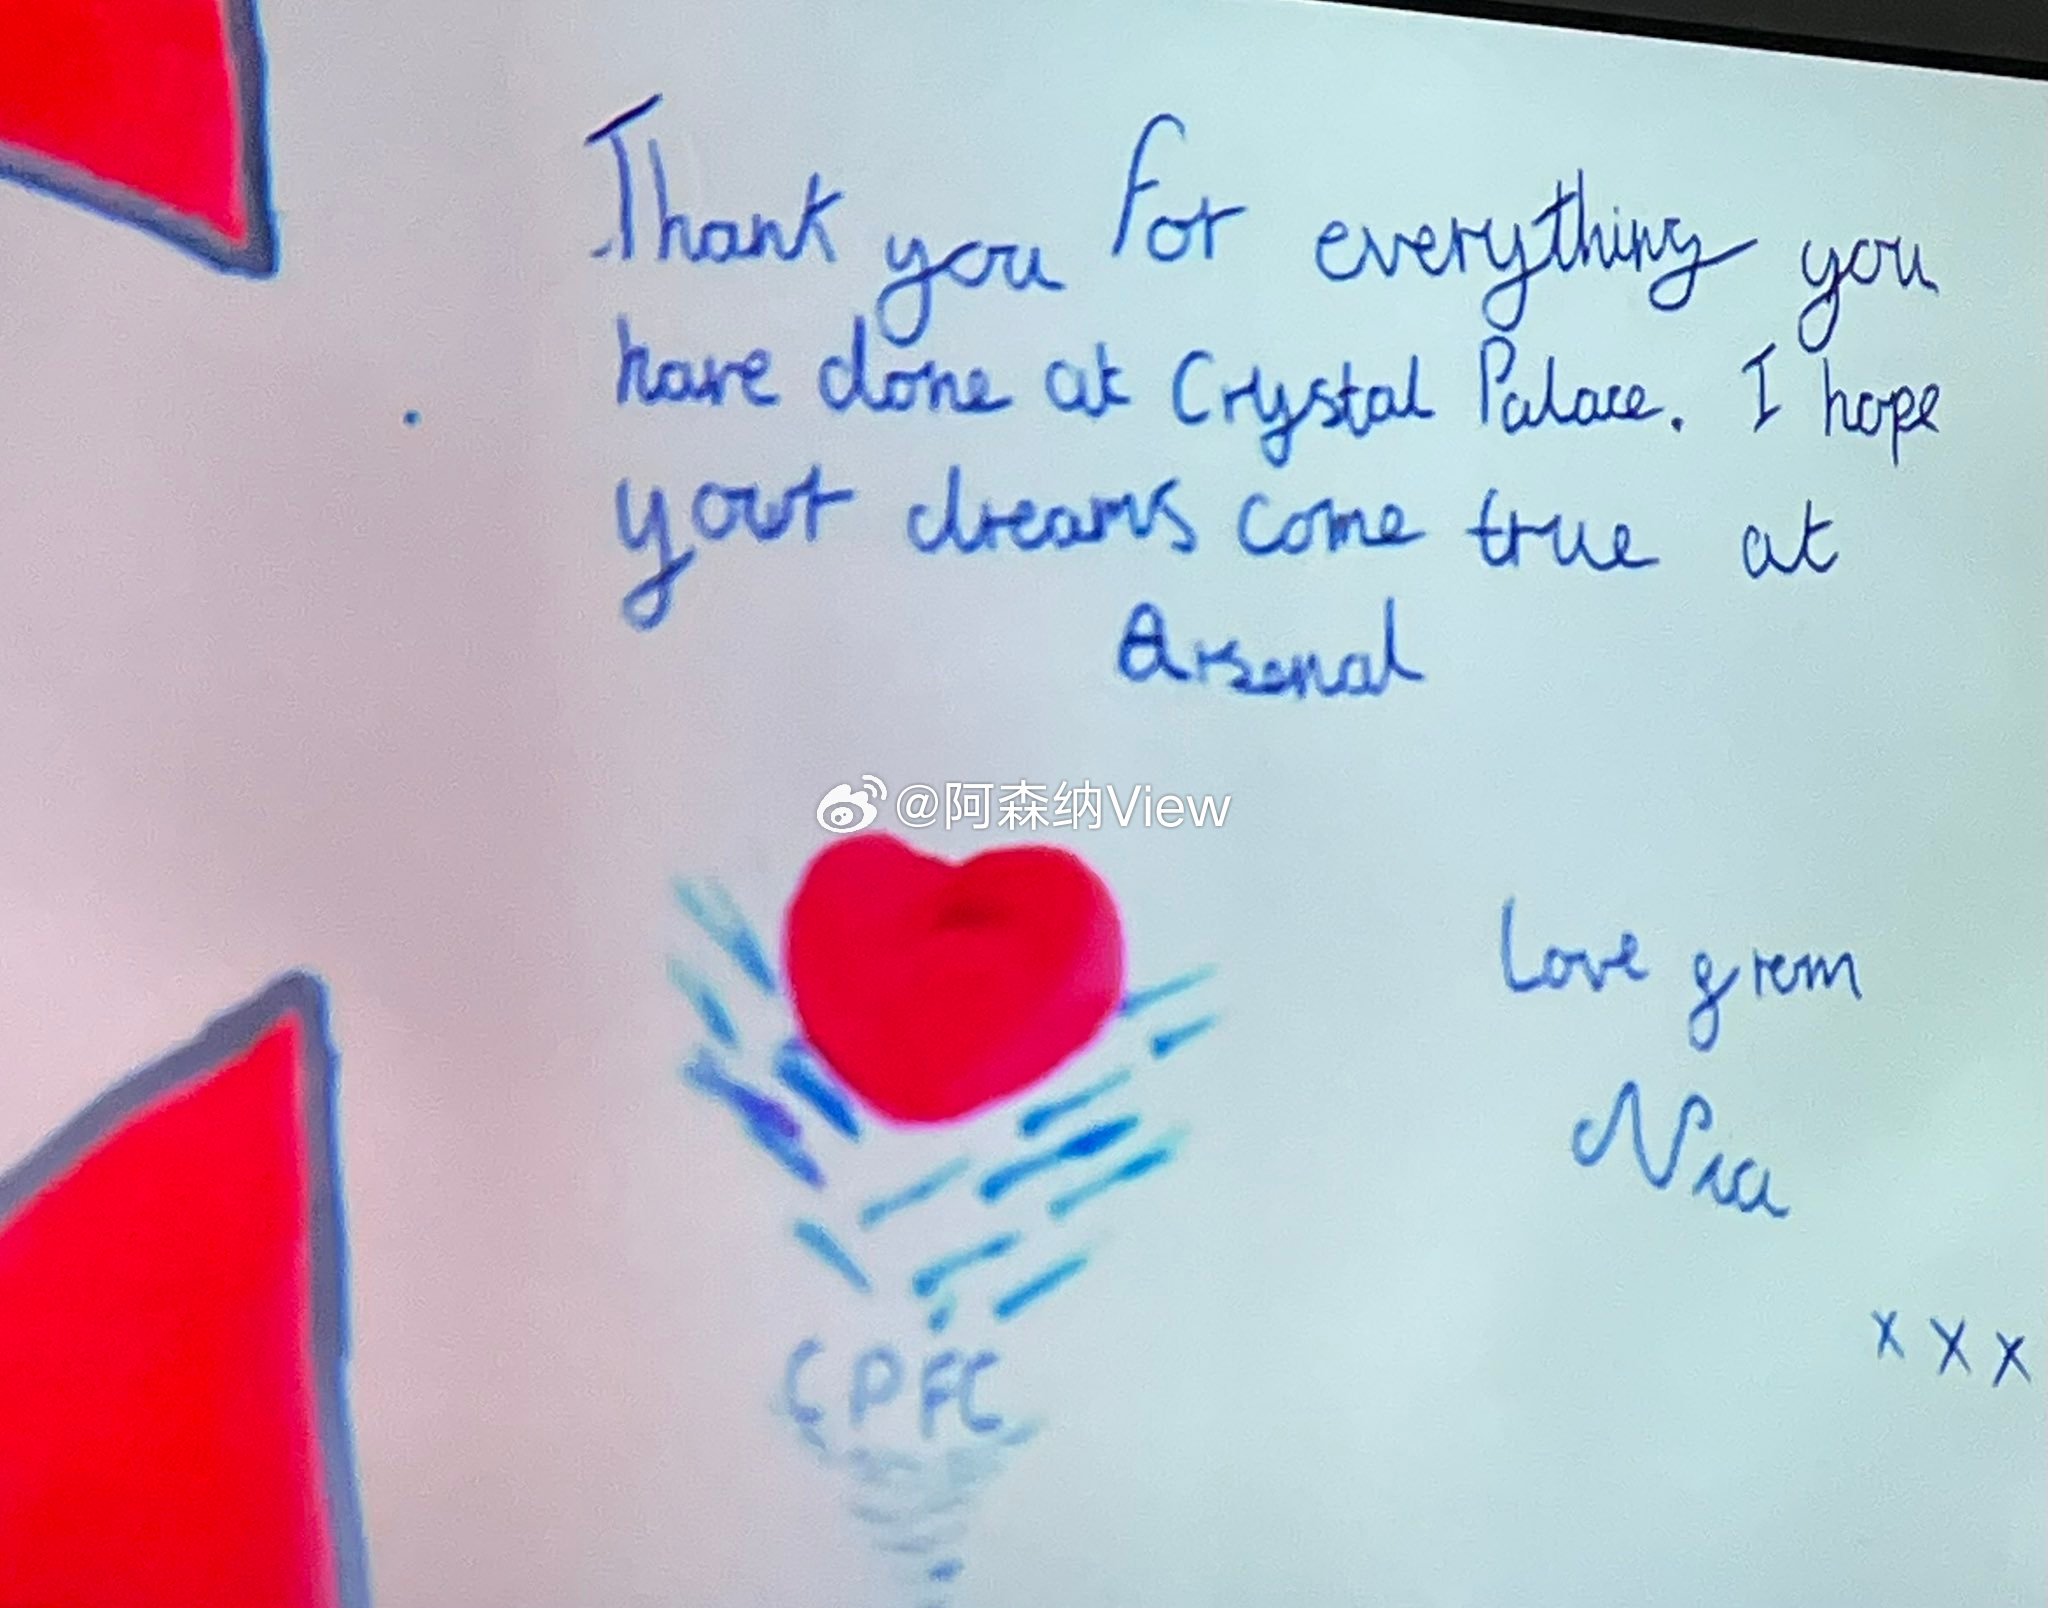 Thank you for everything you
have done at Crystal Palace. I hope
your dreams come true at
Arsenal
@阿森纳View
love grem
Nia
x x x
CPFC